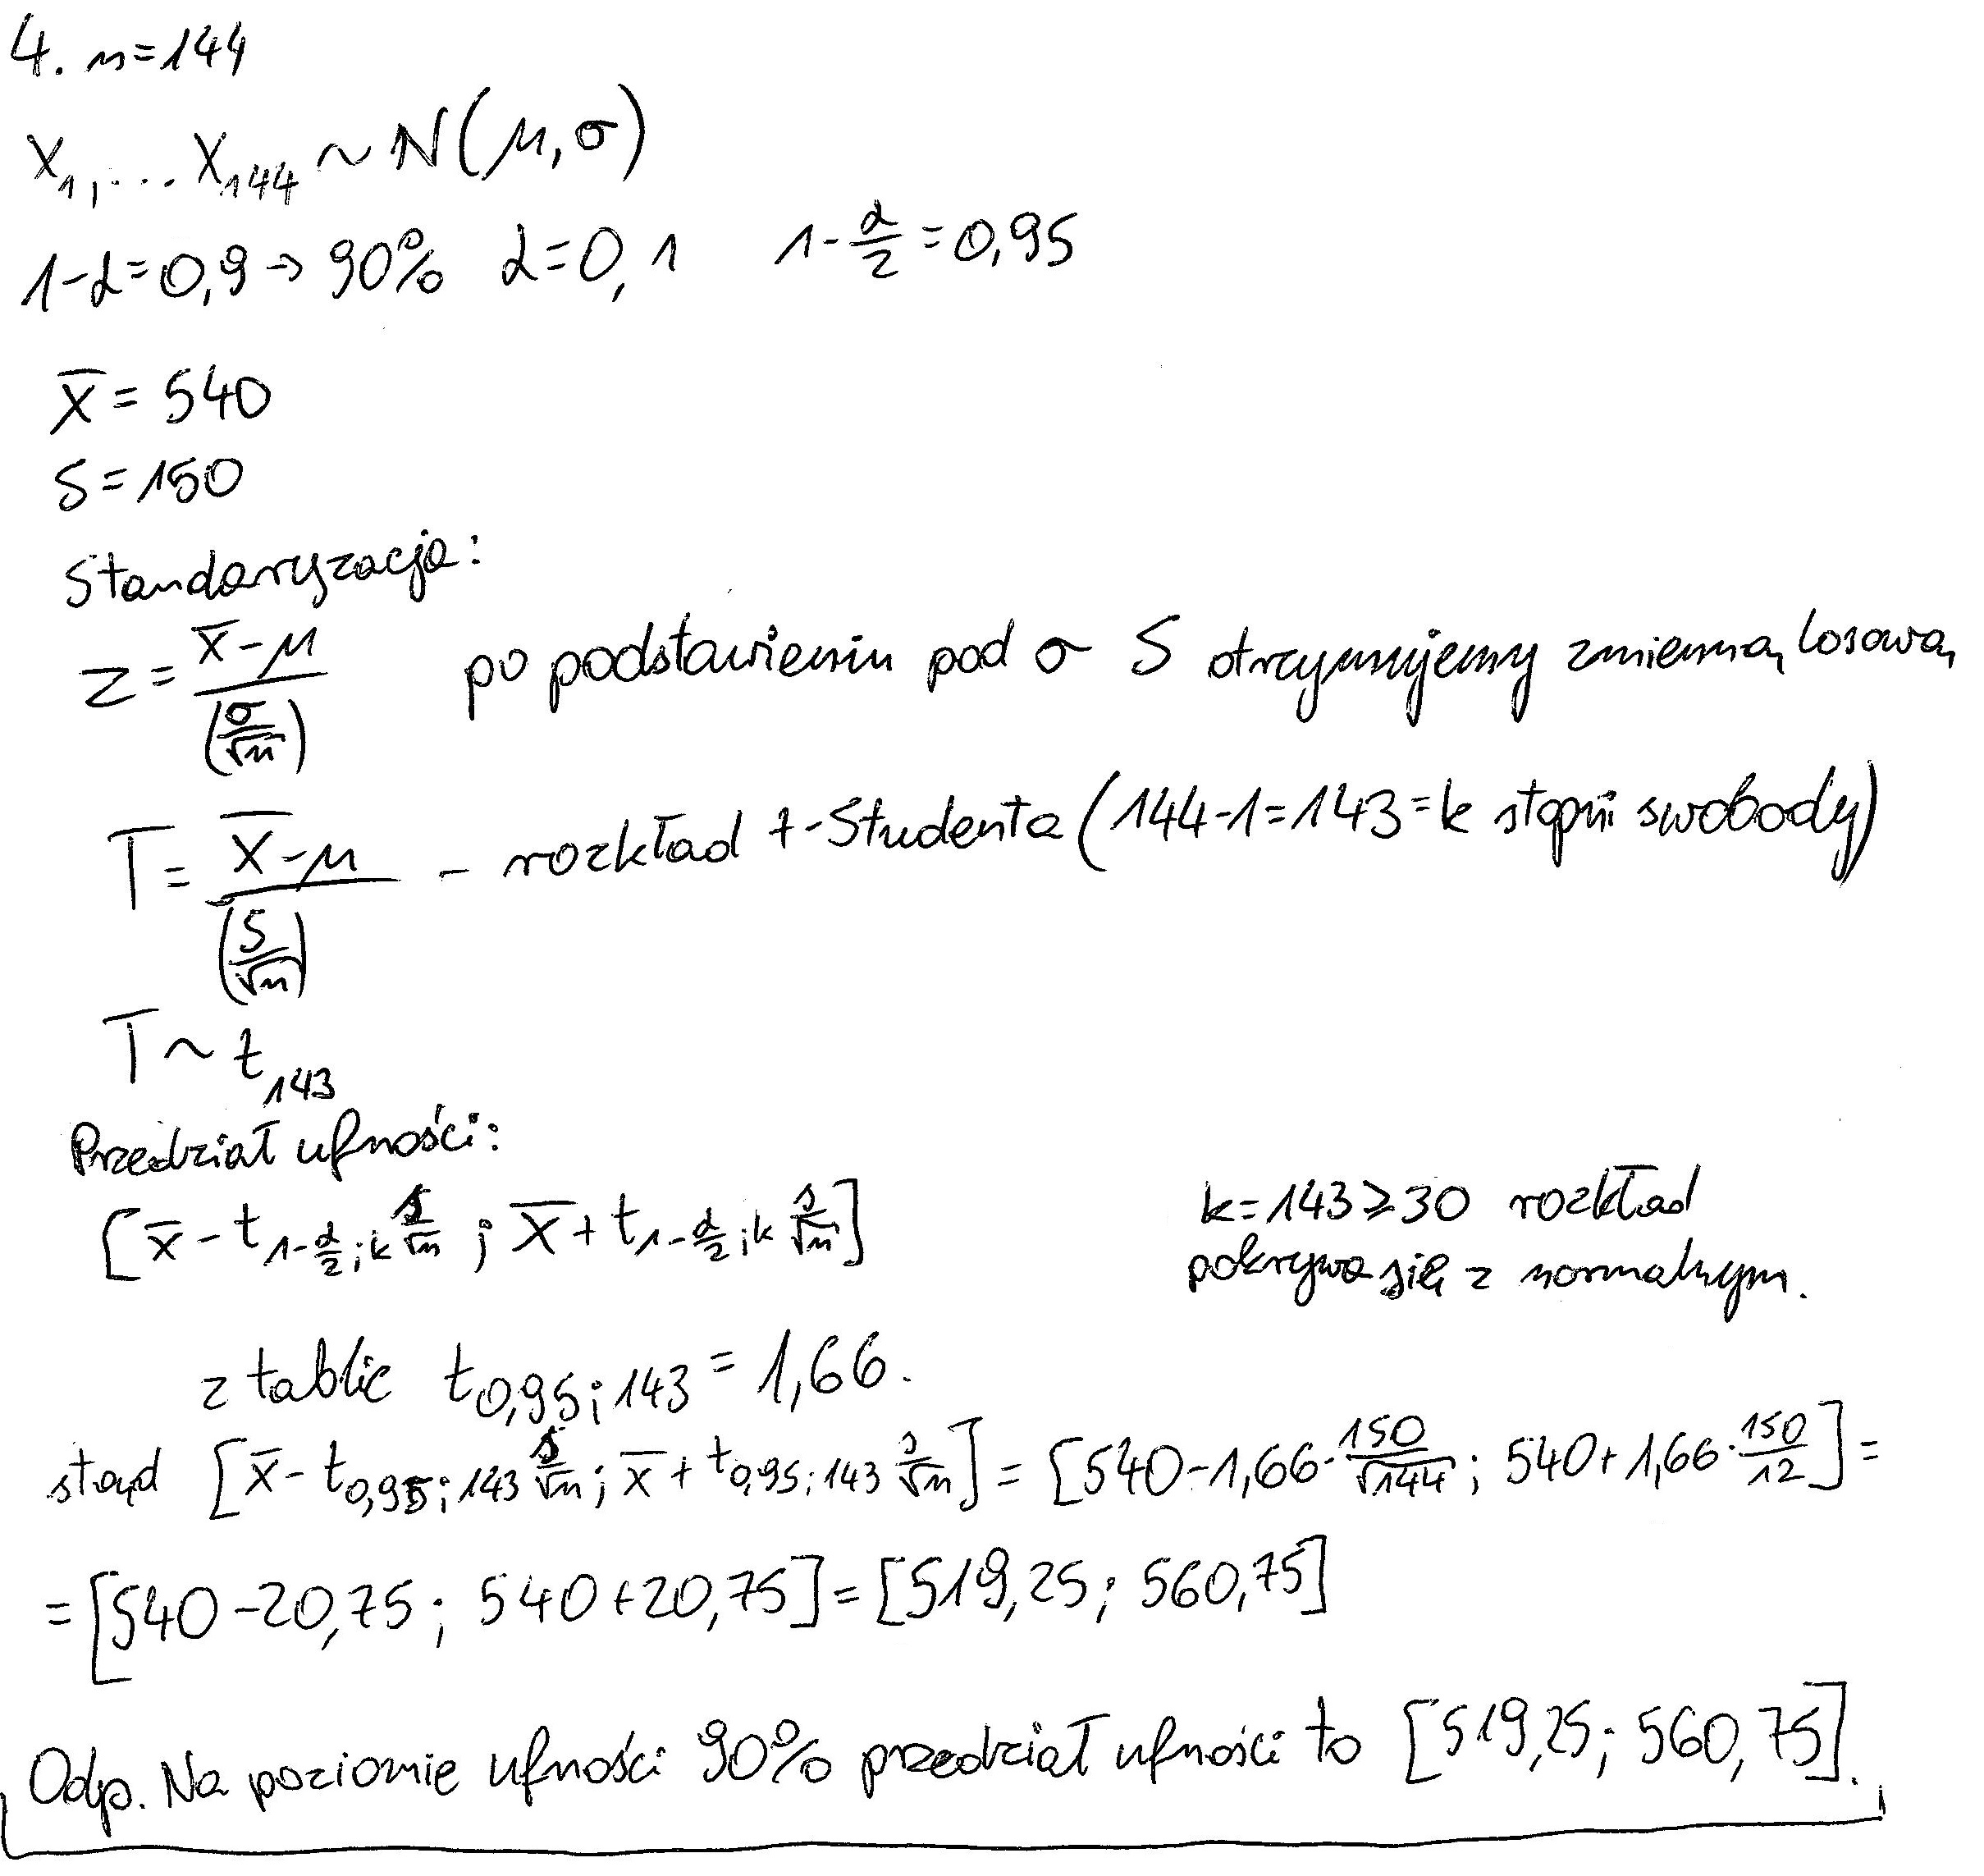 4. n=144
X₁,... X₁₄₄ ~ N(μ,σ)
1-α=0,9 → 90% α=0,1 1-α/2=0,95
x̄ = 540
S=150
Standaryzacja:
z = (x̄-μ)/(σ/√n) po podstawieniu pod σ S otrzymujemy zmienną losową
T = (X̄-μ)/(S/√n) - rozkład t-Studenta (144-1=143=k stopni swobody)
T ~ t₁₄₃
Przedział ufności:
[x̄ - t_{1-α/2;k} s/√n ; x̄ + t_{1-α/2;k} s/√n]
k=143⩾30 rozkład
pokrywa się z normalnym.
z tablic t_{0,95;143} = 1,66.
stąd [x̄ - t_{0,95;143} s/√n ; x̄ + t_{0,95;143} s/√n] = [540-1,66·150/√144 ; 540+1,66·150/12] =
= [540-20,75 ; 540+20,75] = [519,25 ; 560,75]
Odp. Na poziomie ufności 90% przedział ufności to [519,25 ; 560,75].